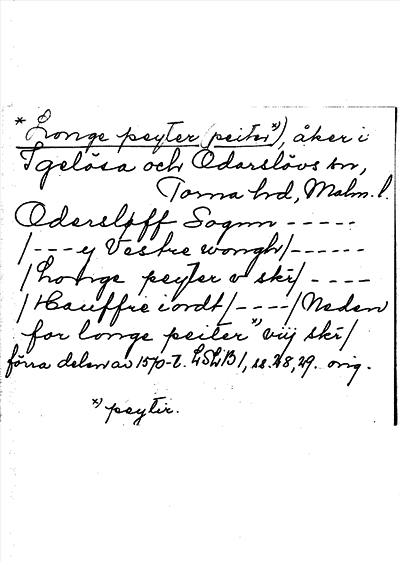 * Longe peyter (peiter*)), åker i
Igelösa och Odarslövs sn,
Torna hd, Malm. l.
Odersløff Sognn - - - - -
/ - - - y Vestre wongh / - - - - - -
/ Longe peyter v skr / - - - -
/ Hauffre iordt / - - - - / Neden
for longe peiter*) viij skr /
förra delen av 1570-t. LSLB 1, ss. 28, 29. orig.
*) peytir.